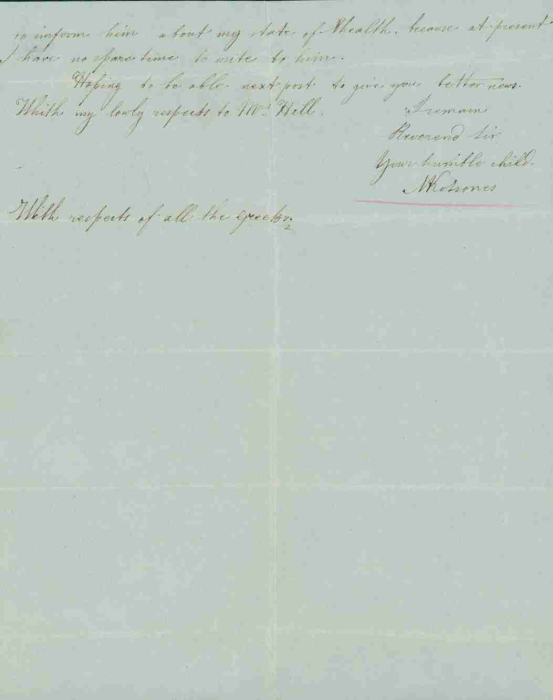 to inform him about my state of Whealth. because at present
I have no spare time to write to him.
Hoping to be able next post to give you better news.
Whith my lowly respects to Mrs Hill.
I remain
Reverend Sir
Your humble child.
With respects of all the greeks